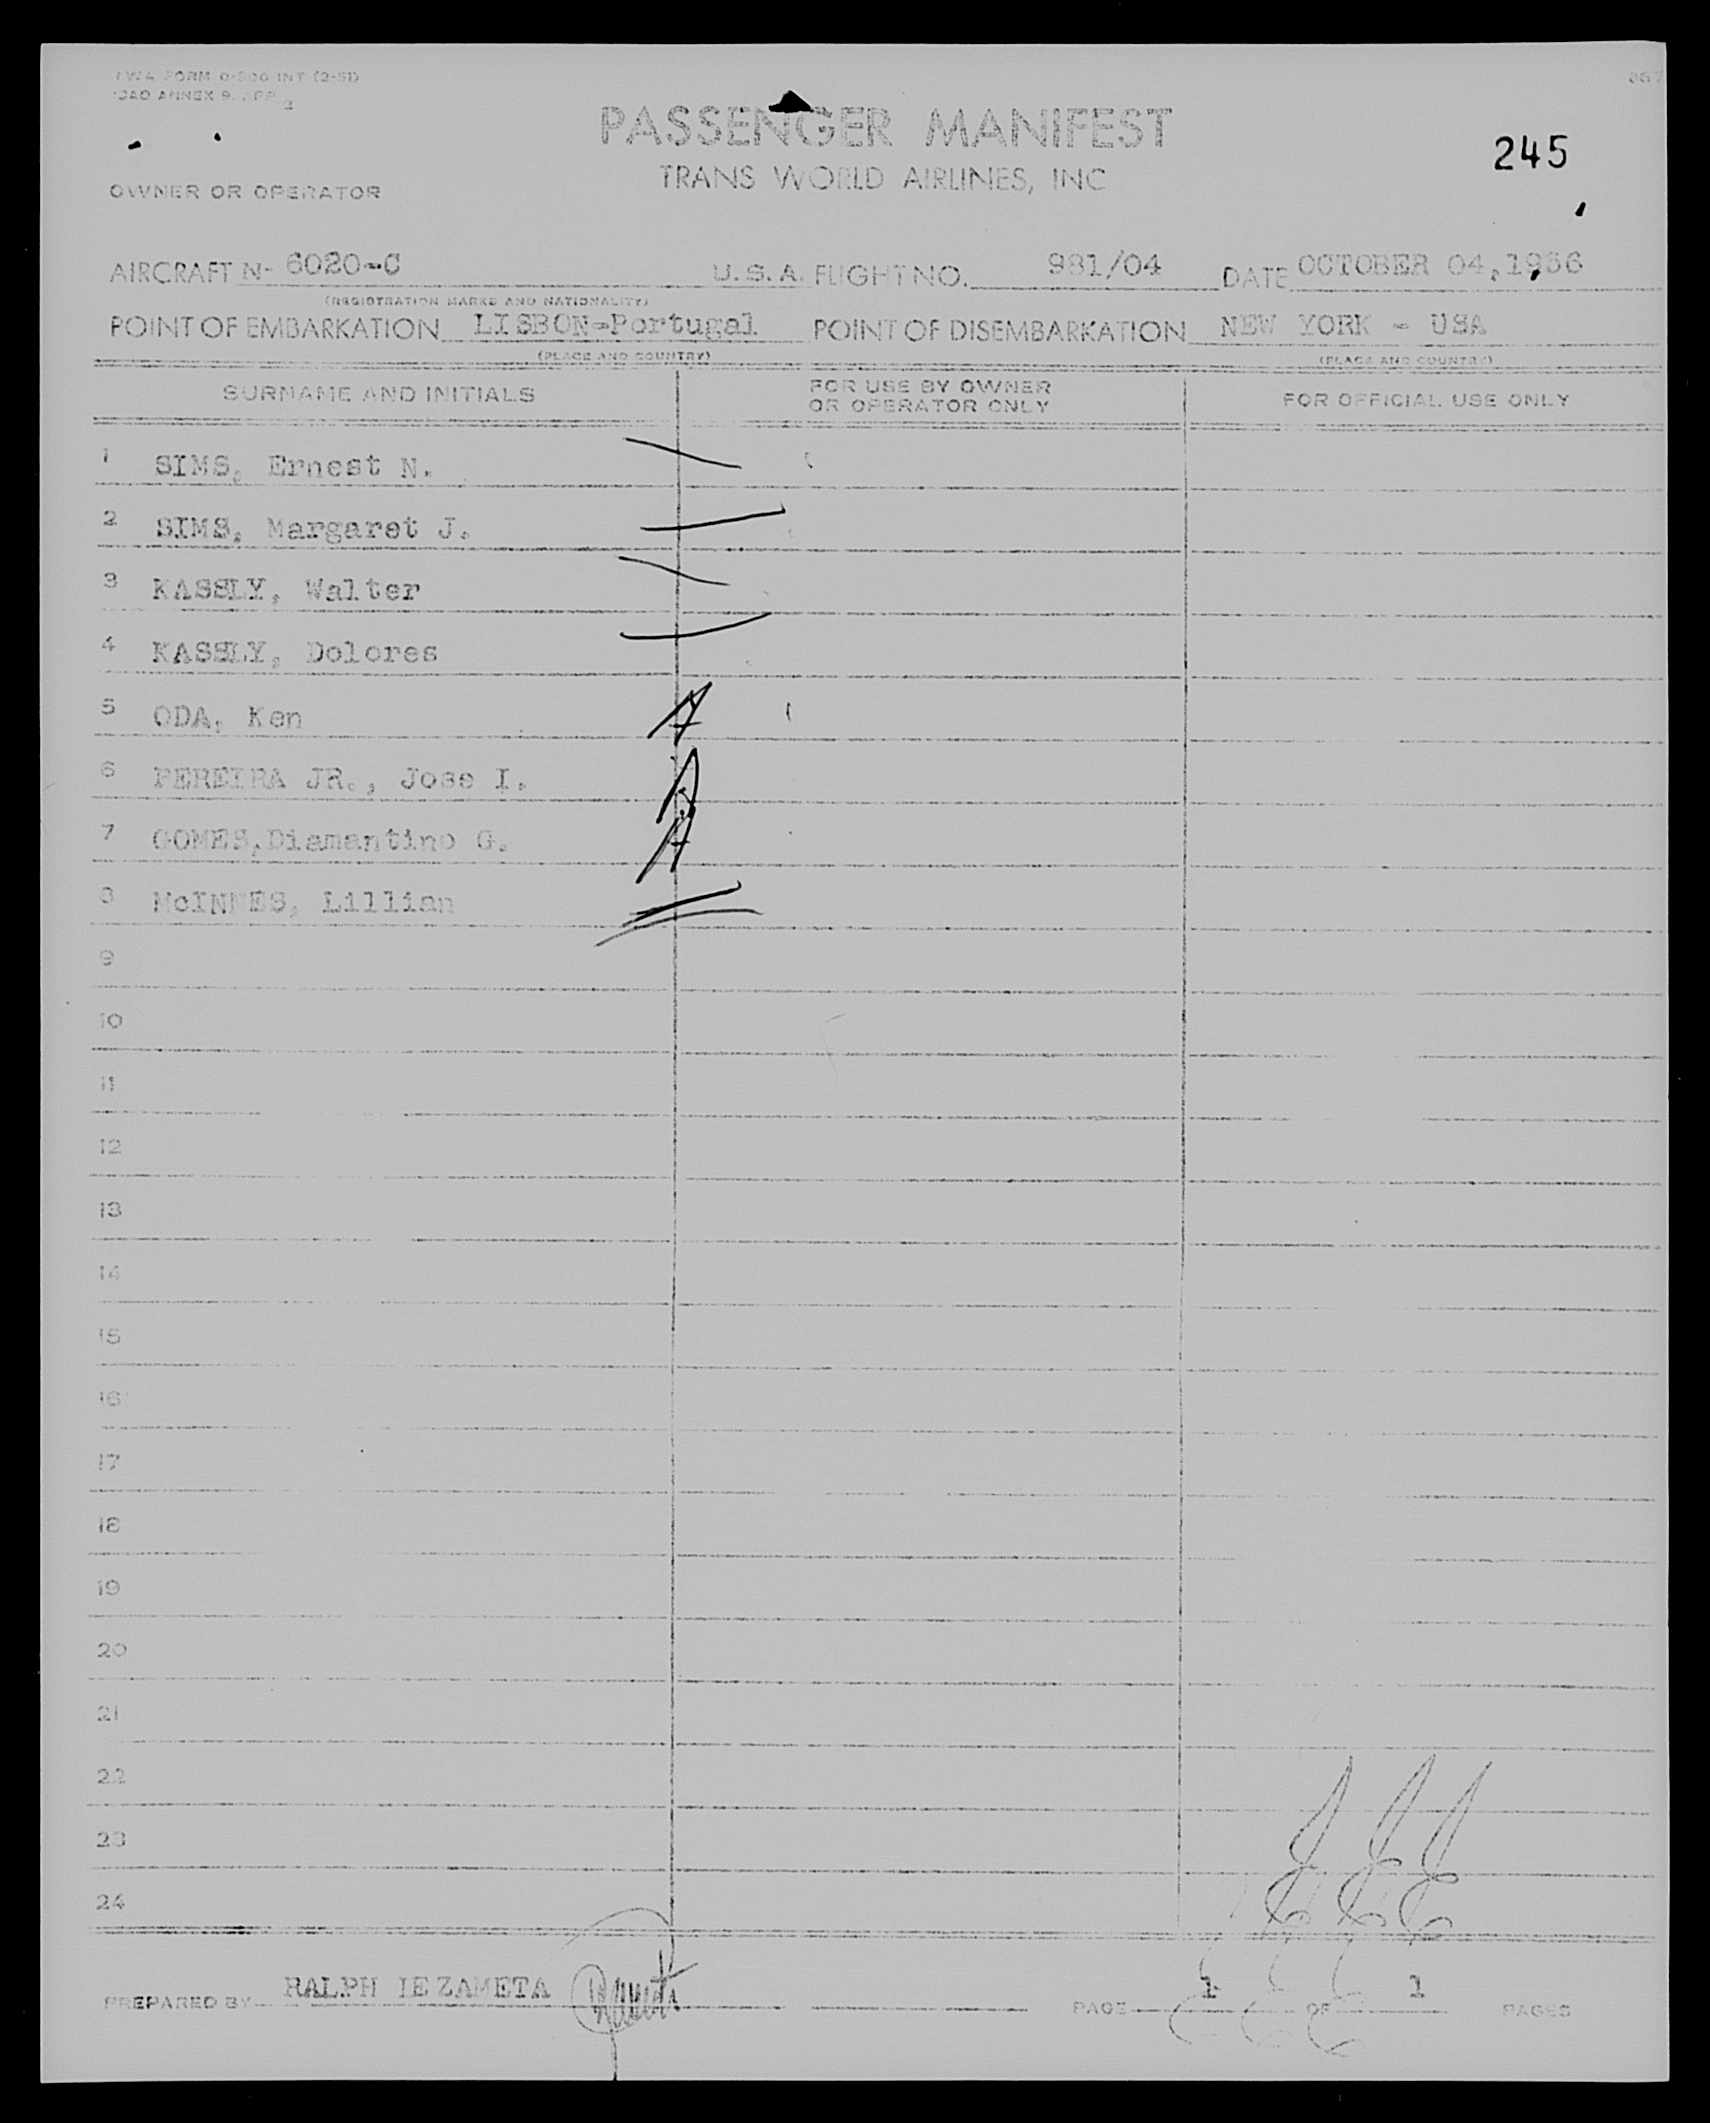 TWA FORM 0-300 INT (2-51)
ICAO ANNEX 9, APP. 2
PASSENGER MANIFEST
245
TRANS WORLD AIRLINES, INC
OWNER OR OPERATOR
AIRCRAFT N- 6020-C U.S.A. FLIGHT NO. 981/04 DATE OCTOBER 04,1956
(REGISTRATION MARKS AND NATIONALITY)
POINT OF EMBARKATION LISBON-Portugal POINT OF DISEMBARKATION NEW YORK - USA
(PLACE AND COUNTRY) (PLACE AND COUNTRY)
SURNAME AND INITIALS FOR USE BY OWNER OR OPERATOR ONLY FOR OFFICIAL USE ONLY
1 SIMS, Ernest N.
2 SIMS, Margaret J.
3 KASSLY, Walter
4 KASSLY, Dolores
5 ODA, Ken
6 PEREIRA JR., Jose I.
7 GOMES,Diamantino G.
8 McINNES, Lillian
9
10
11
12
13
14
15
16
17
18
19
20
21
22
23
24
PREPARED BY RALPH IEZAMETA PAGE 1 OF 1 PAGES